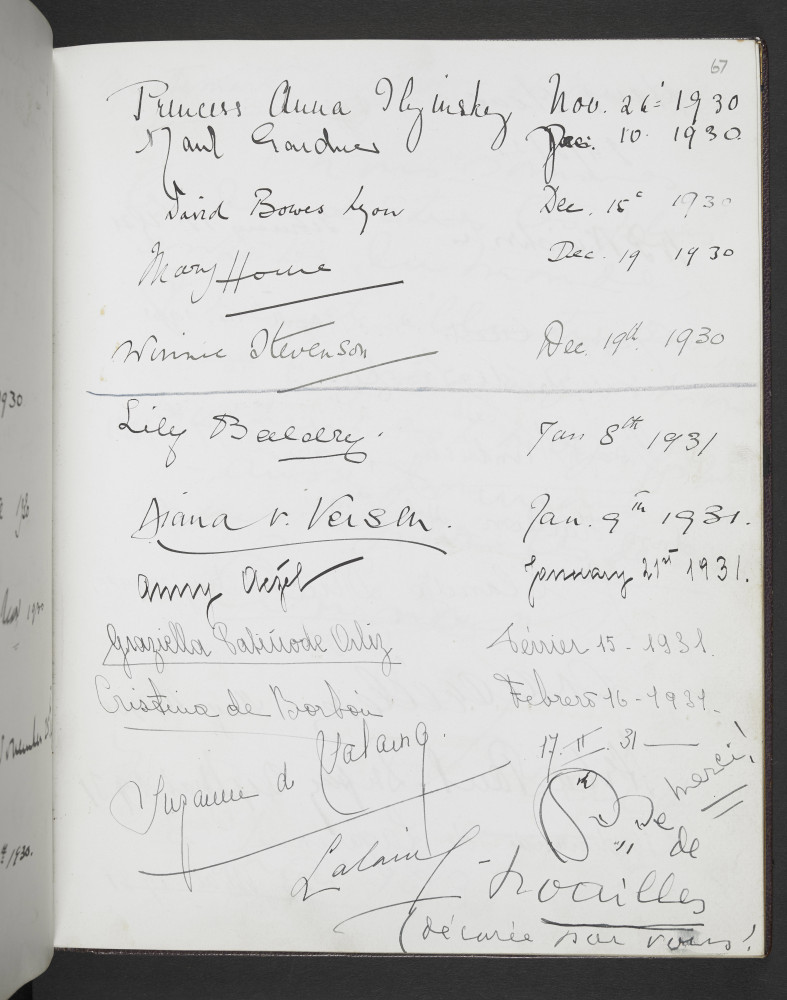 67
Princess Anna Ilyinsky Nov. 26' 1930
Maud Gardner Dec. 10. 1930.
David Bowes Lyon Dec. 15th 1930
Mary Home Dec. 19 1930
Winnie Stevenson Dec. 19th. 1930
Lily Baldry. Jan 8th 1931
Diana v. Versen. Jan. 9th 1931.
Anny January 21st 1931.
Graziella Patiño de Ortiz Février 15 - 1931.
Cristina de Borbón Febrero 16 - 1931.
Suzanne d 17. II. 31
merci!
de
Lalaing - Noailles
(décurée par vous!
1930
1930.